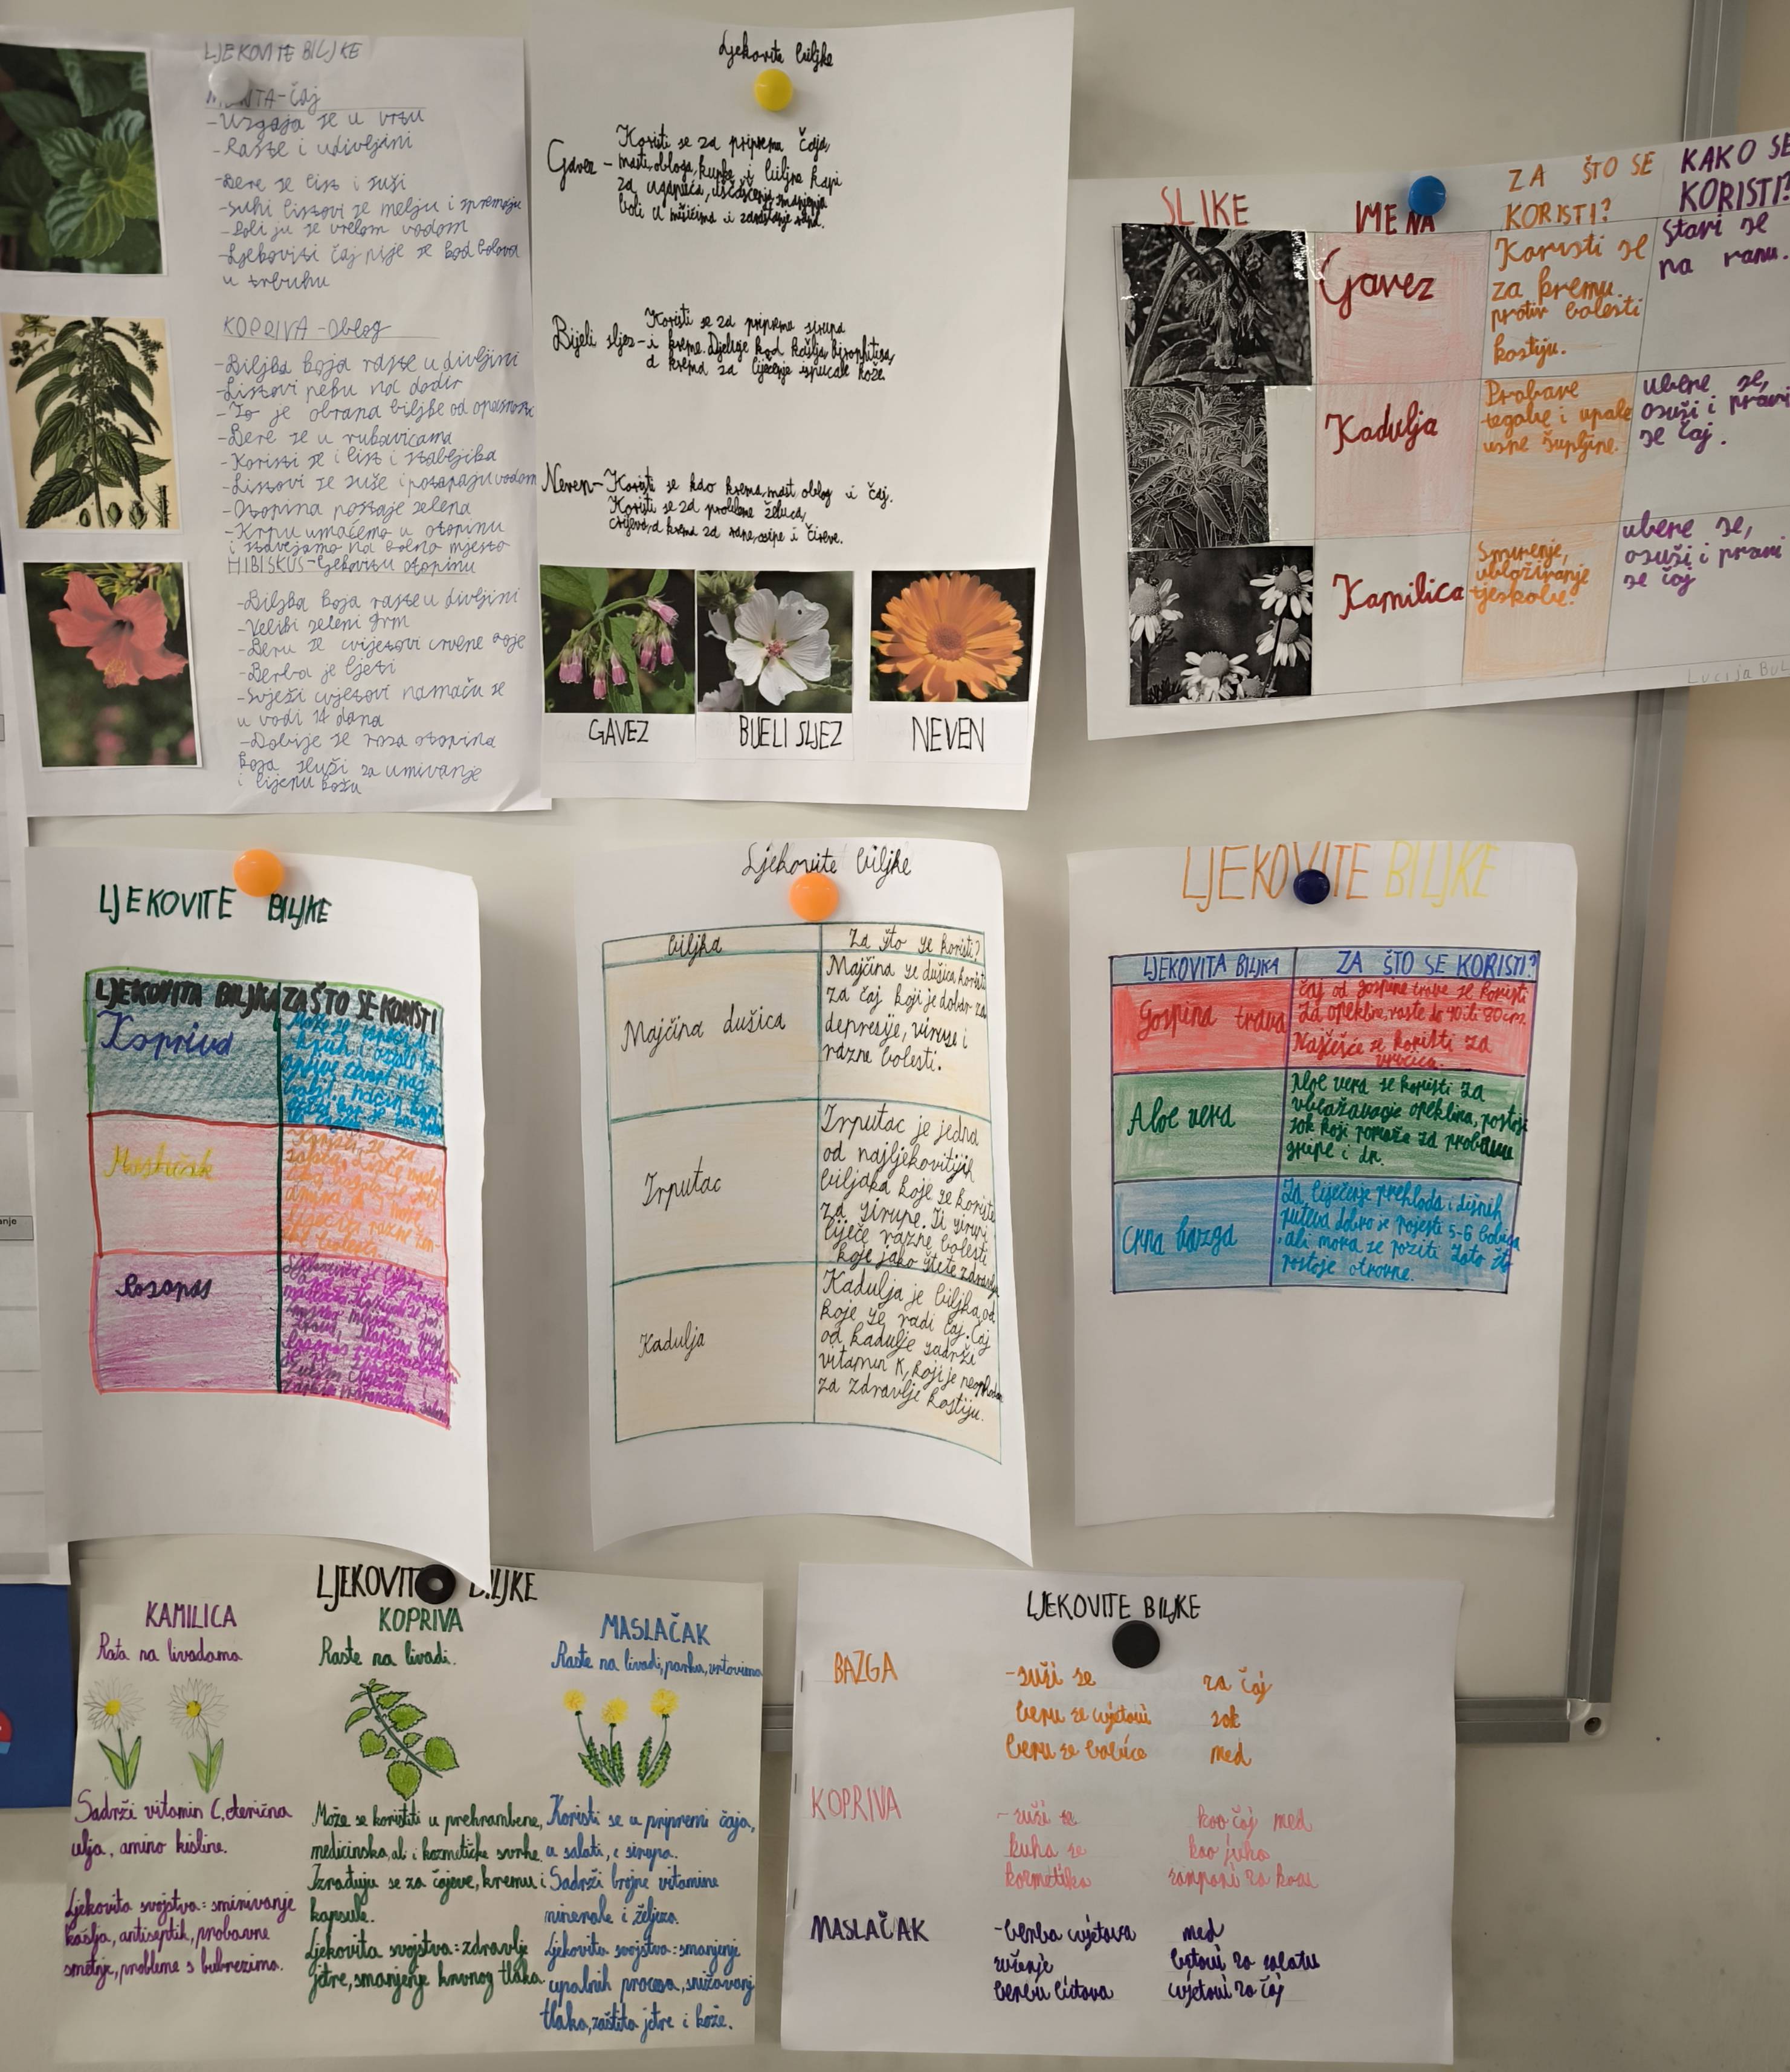 LJEKOVITE BILJKE
-čaj
-Uzgaja se u vrtu
-Raste i u divljini
-Bere se list i suši
-suhi listovi se melju i spremaju
-Poliju se vrelom vodom
-Ljekoviti čaj pije se kod bolova
u trbuhu
KOPRIVA-Oblog
-Biljka koja raste u divljini
-Listovi peku na dodir
-To je obrana biljke od opasnosti
-Bere se u rukavicama
-Koristi se i list i stabljika
-Listovi se suše i potapaju vodom
-Otopina postaje zelena
-Krpu umačemo u otopinu
i stavljamo na bolno mjesto
HIBISKUS-ljekovitu otopinu
-Biljka koja raste u divljini
-Veliki zeleni grm
-Beru se cvjetovi crvene boje
-Berba je ljeti
-Svježi cvjetovi namaču se
u vodi 14 dana
-Dobije se roza otopina
koja služi za umivanje
i lijepu kožu
Ljekovite biljke
Gavez - Koristi se za pripremu čaja,
masti, obloga, kupke i biljne kapi
za uganuća, smanjenje
boli u mišićima i zarastanje rana.
Bijeli sljez - Koristi se za pripremu sirupa
i kreme. Djeluje kod kašlja, bronhitisa,
a krema za liječenje ispucale kože.
Neven-Koristi se kao krema, mast, oblog i čaj.
Koristi se za probleme želuca,
crijeva, a krema za rane, osipe i čireve.
GAVEZ
BIJELI SLJEZ
NEVEN
SLIKE
IMENA
ZA ŠTO SE
KORISTI?
KAKO SE
KORISTI?
Gavez
Koristi se
za kremu
protiv bolesti
kostiju.
Stavi se
na ranu.
Kadulja
Probave
tegobe i upale
usne šupljine.
ubere se,
osuši i pravi
se čaj.
Kamilica
Smirenje,
ublaživanje
tjeskobe.
ubere se,
osuši i pravi
se čaj
Lucija
LJEKOVITE BILJKE
LJEKOVITA BILJKA ZA ŠTO SE KORISTI
Kopriva
Maslačak
Rosopas
Ljekovite biljke
biljka
Za što se koristi?
Majčina dušica
Majčina se dušica koristi
za čaj koji je dobar za
depresije, viruse i
razne bolesti.
Trputac
Trputac je jedna
od najljekovitijih
biljaka koje se koriste
za sirupe. Ti sirupi
liječe razne bolesti
koje jako štete zdravlju
Kadulja
Kadulja je biljka od
koje se radi čaj. Čaj
od kadulje sadrži
vitamin K, koji je neophodan
za zdravlje kostiju.
LJEKOVITE BILJKE
LJEKOVITA BILJKA
ZA ŠTO SE KORISTI?
Gospina trava
Čaj od gospine trave se koristi
za opekline, raste do 40 ili 80 cm.
Najčešće se koristi za
Aloe vera
Aloe vera se koristi za
ublažavanje opeklina, postoji
sok koji pomaže za probavu
gripe i dr.
Crna bazga
Za liječenje prehlada i dišnih
puteva dobro je pojesti 5-6 bobica
ali mora se paziti zato što
postoje otrovne.
LJEKOVITE BILJKE
KAMILICA
Rata na livadama
Sadrži vitamin C, eterična
ulja, amino kisline.
Ljekovita svojstva: smirivanje
kašlja, antiseptik, probavne
smetnje, probleme s bubrezima.
KOPRIVA
Raste na livadi.
Može se koristiti u prehrambene,
medicinske, ali i kozmetičke svrhe.
Izrađuju se za čajeve, kremu i
kapsule.
Ljekovita svojstva: zdravlje
jetre, smanjenje krvnog tlaka
MASLAČAK
Raste na livadi, parku, vrtovima
Koristi se u pripremi čaja,
u salati, i sirupa.
Sadrži brojne vitamine
minerale i željezo.
Ljekovita svojstva: smanjenje
upalnih procesa, snižavanj
tlaka, zaštita jetre i kože.
LJEKOVITE BILJKE
BAZGA
-suši se
za čaj
beru se cvjetovi
sok
beru se bobice
med
KOPRIVA
-suši se
kao čaj med
kuha se
kao juha
kozmetika
šamponi za kosu
MASLAČAK
-berba cvjetova
med
sušenje
listovi za salatu
berba listova
cvjetovi za čaj